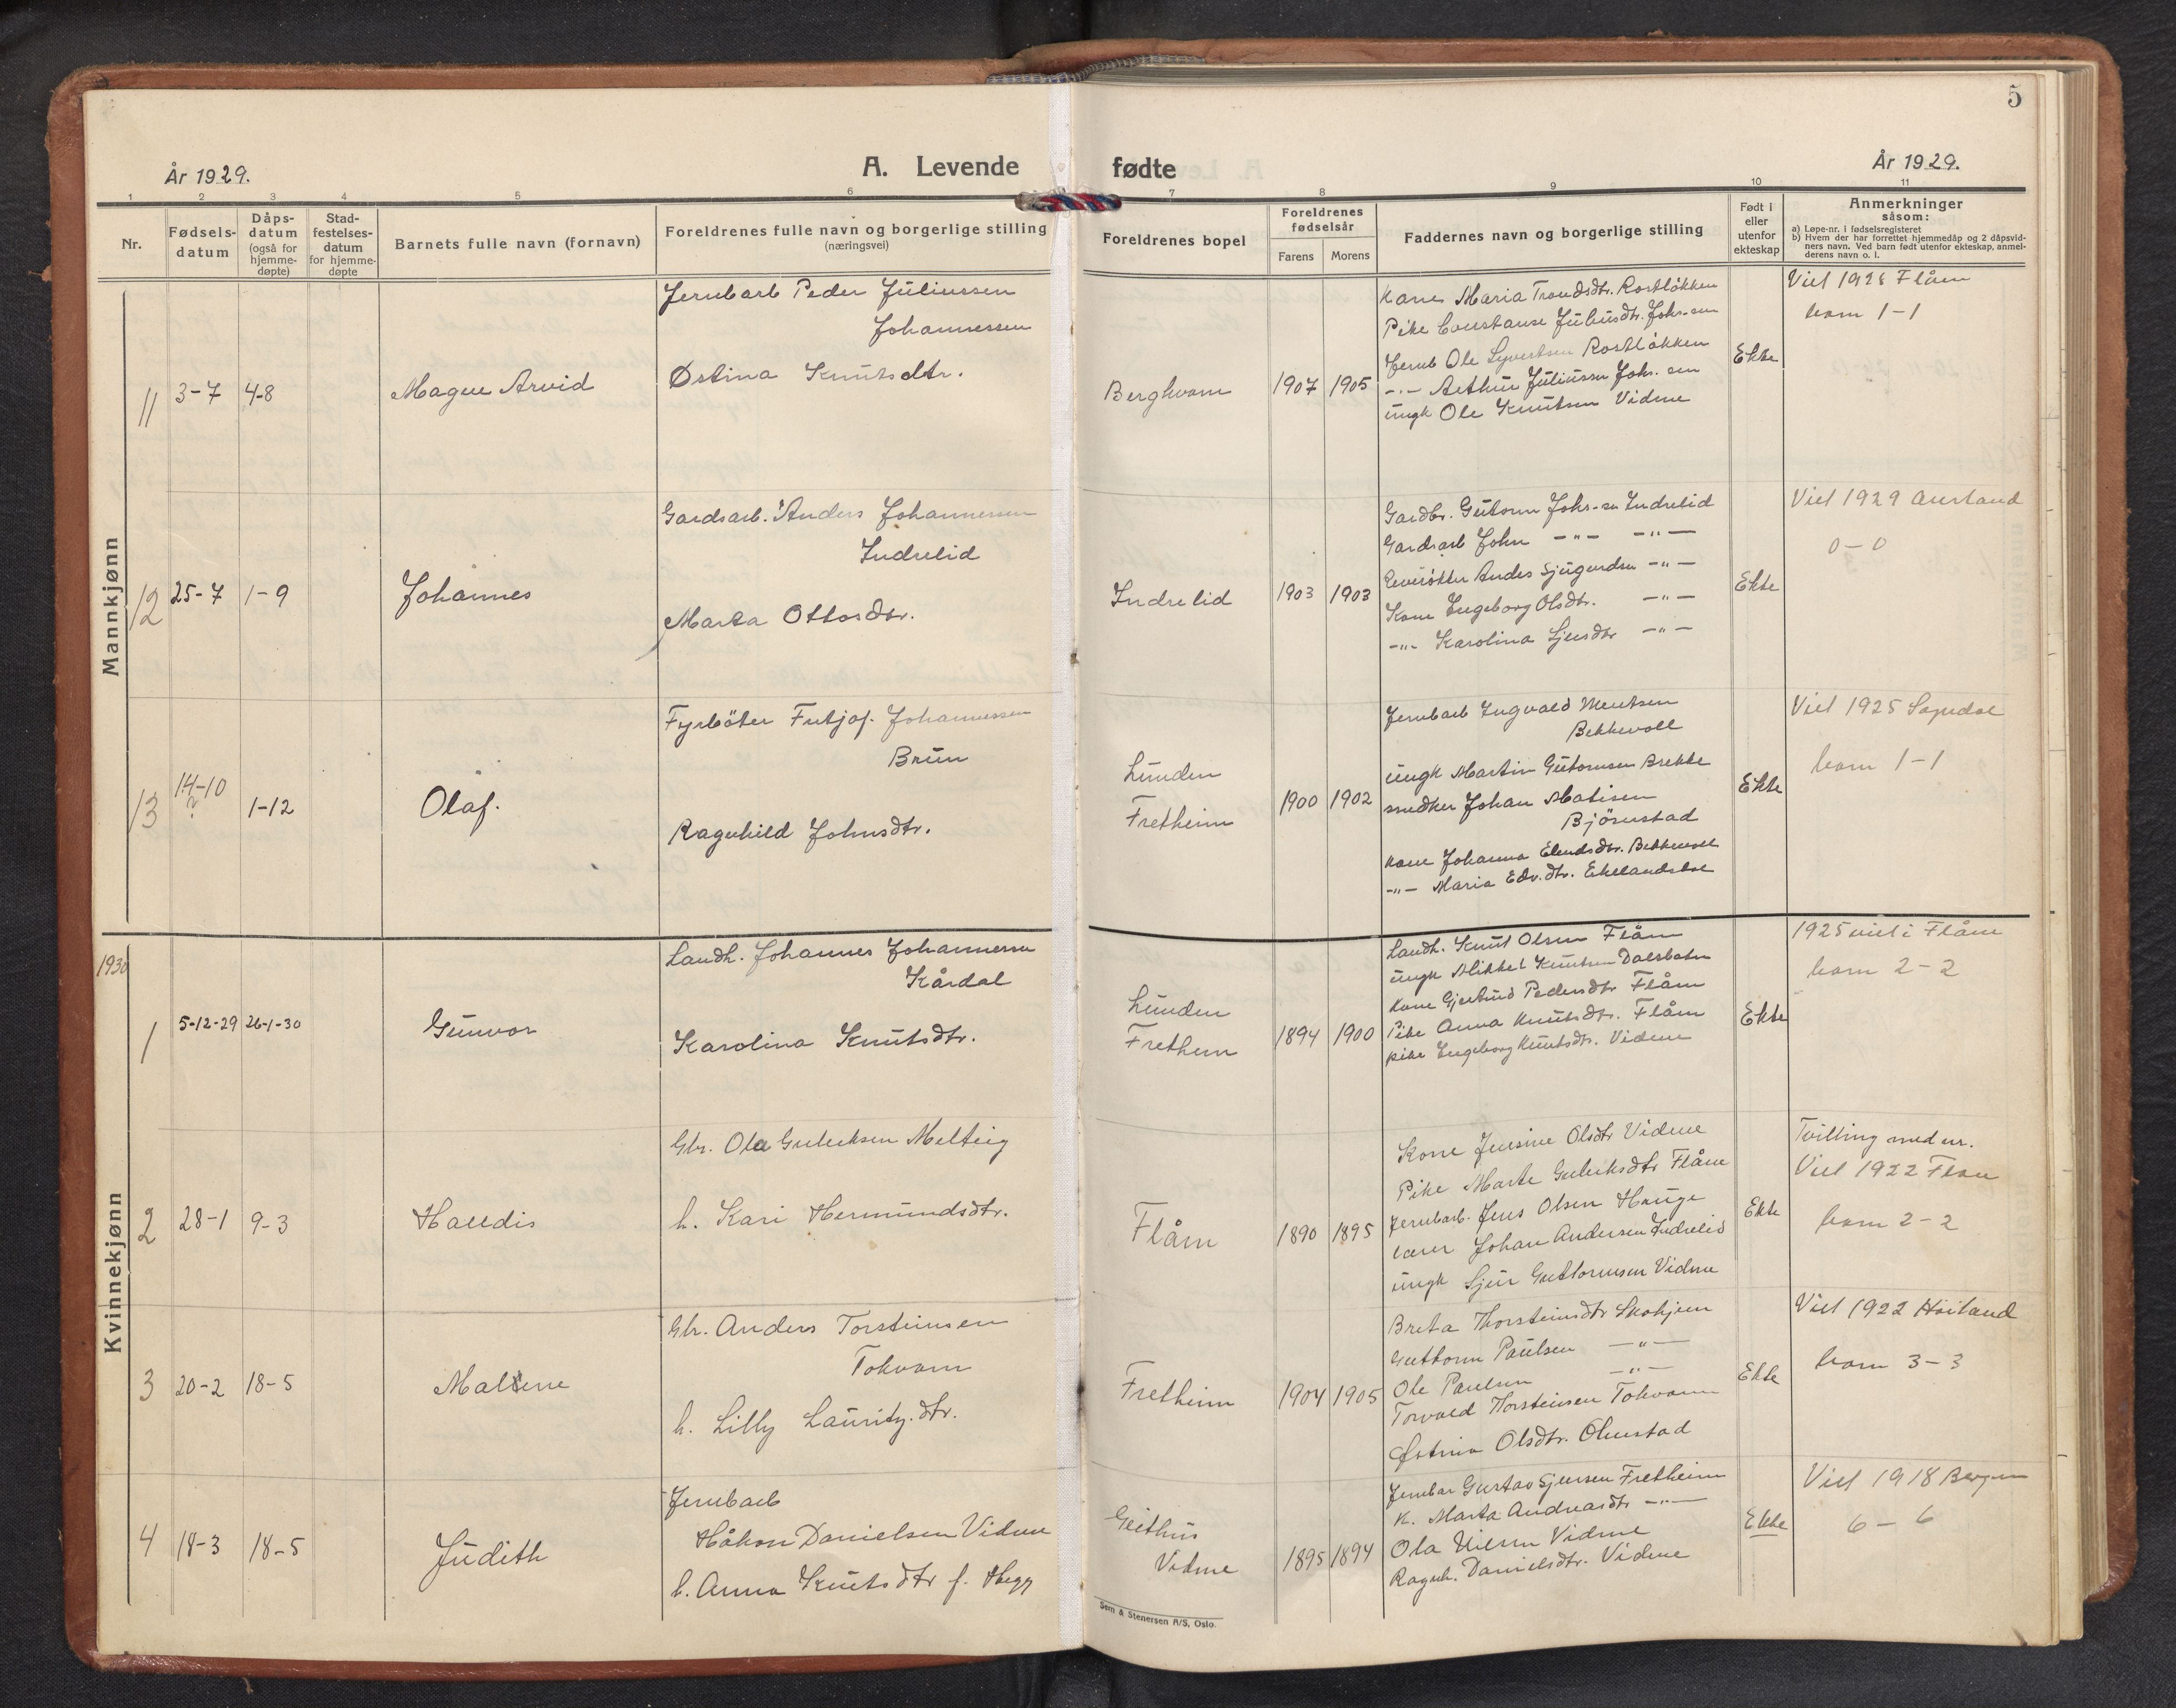 5
År 1929.
A. Levende fødte
År 1929.
1 2 3 4 5 6 7 8 9 10 11
Nr.
Fødselsdatum
Dåpsdatum (også for hjemmedøpte)
Stadfestelsesdatum for hjemmedøpte
Barnets fulle navn (fornavn)
Foreldrenes fulle navn og borgerlige stilling (næringsvei)
Foreldrenes bopel
Foreldrenes fødselsår
Farens Morens
Faddernes navn og borgerlige stilling
Født i eller utenfor ekteskap
Anmerkninger såsom:
a) Løpe-nr. i fødselsregisteret
b) Hvem der har forrettet hjemmedåp og 2 dåpsvidners navn. Ved barn født utenfor ekteskap, anmelderens navn o. l.
Mannkjønn
11 3-7 4-8 Magne Arvid
Jernbarb Peder Juliussen
Johannessen
Østina Knutsdtr.
Berghvam 1907 1905
Kone Maria Trondsdtr. Rostløkken
Pike Constanse Juliusdtr. Johs-sen
Jernb Ole Syvertsen Rostløkken
-"- Arthur Juliussen Johs. sen
ungk Ole Knutsen Vidme
Ekte
Viet 1928 Flåm
barn 1-1
12 25-7 1-9 Johannes
Gardsarb. Anders Johannessen
Indrelid
Marta Ottosdtr.
Indrelid 1903 1903
Gardbr. Gutorm Johs-sen Indrelid
Gardsarb John -"- -"-
Anders Sjugurdsen -"-
Kone Ingeborg Olsdtr. -"-
-"- Karolina Sjursdtr -"-
Ekte
Viet 1929 Aurland
0-0
13 14-10 ? 1-12 Olaf.
Fyrböter Fritjof. Johannessen
Brun
Ragnhild Johnsdtr.
Lunden
Fretheim 1900 1902
Jernbarb Ingvald Mentsen
Bekkevoll
ungk Martin Gutormsen Brekke
snedker Johan Matisen
Björnstad
Kone Johanna Elendsdtr. Bekkevoll
-"- Maria Edv.dtr.
Ekte
Viet 1925 Sogndal
barn 1-1
Kvinnekjønn
1930
1 5-12-29 26-1-30 Gunvor
Landh. Johannes Johannessen
Kårdal
Karolina Knutsdtr.
Lunden
Frethem 1894 1900
Landh. Knut Olsen Flåm
ungk Mikkel Knutsen Dalsbotn
Kone Gjertrud Pedersdtr Flåm
Pike Anna Knutsdtr. Flåm
pike Ingeborg Knutsdtr. Vidme
Ekte
1925 viet i Flåm
barn 2-2
2 28-1 9-3 Halldis
Gbr. Ola Gulleiksen Melteig
h. Kari Hermundsdtr.
Flåm 1890 1895
Kone Jensine Olsdtr Vidme
Pike Marte Gulleiksdtr Flåm
Jernbarb. Jens Olsen Hauge
lærer Johan Andersen Indrelid
ungk Sjur Guttormsen Vidme
Ekte
Tvilling med nr.
Viet 1922 Flåm
barn 2-2
3 20-2 18-5 Malene
Gbr. Anders Torsteinsen
Tokvam
h. Lilly Lauritz.dtr.
Fretheim 1904 1905
Breta Thorsteinsdtr Skahjem
Guttorm Paulsen -"-
Ole Paulsen -"-
Torvald Thorsteinsen Tokvam
Østina Olsdtr. Ohnstad
Ekte
Viet 1922 Høiland
barn 3-3
4 18-3 18-5 Judith
Jernbarb
Håkon Danielsen Vidme
h. Anna Knutsdtr f. Hegg
Geithus
Vidme 1895 1894
Jernbar Gustav Sjursen Fretheim
K. Marta Andreasdtr -"-
Ola Nilsen Vidme
Ragnh. Danielsdtr. Vidme
Ekte
Viet 1918 Bergen
6-6
Sem & Stenersen A/S, Oslo.